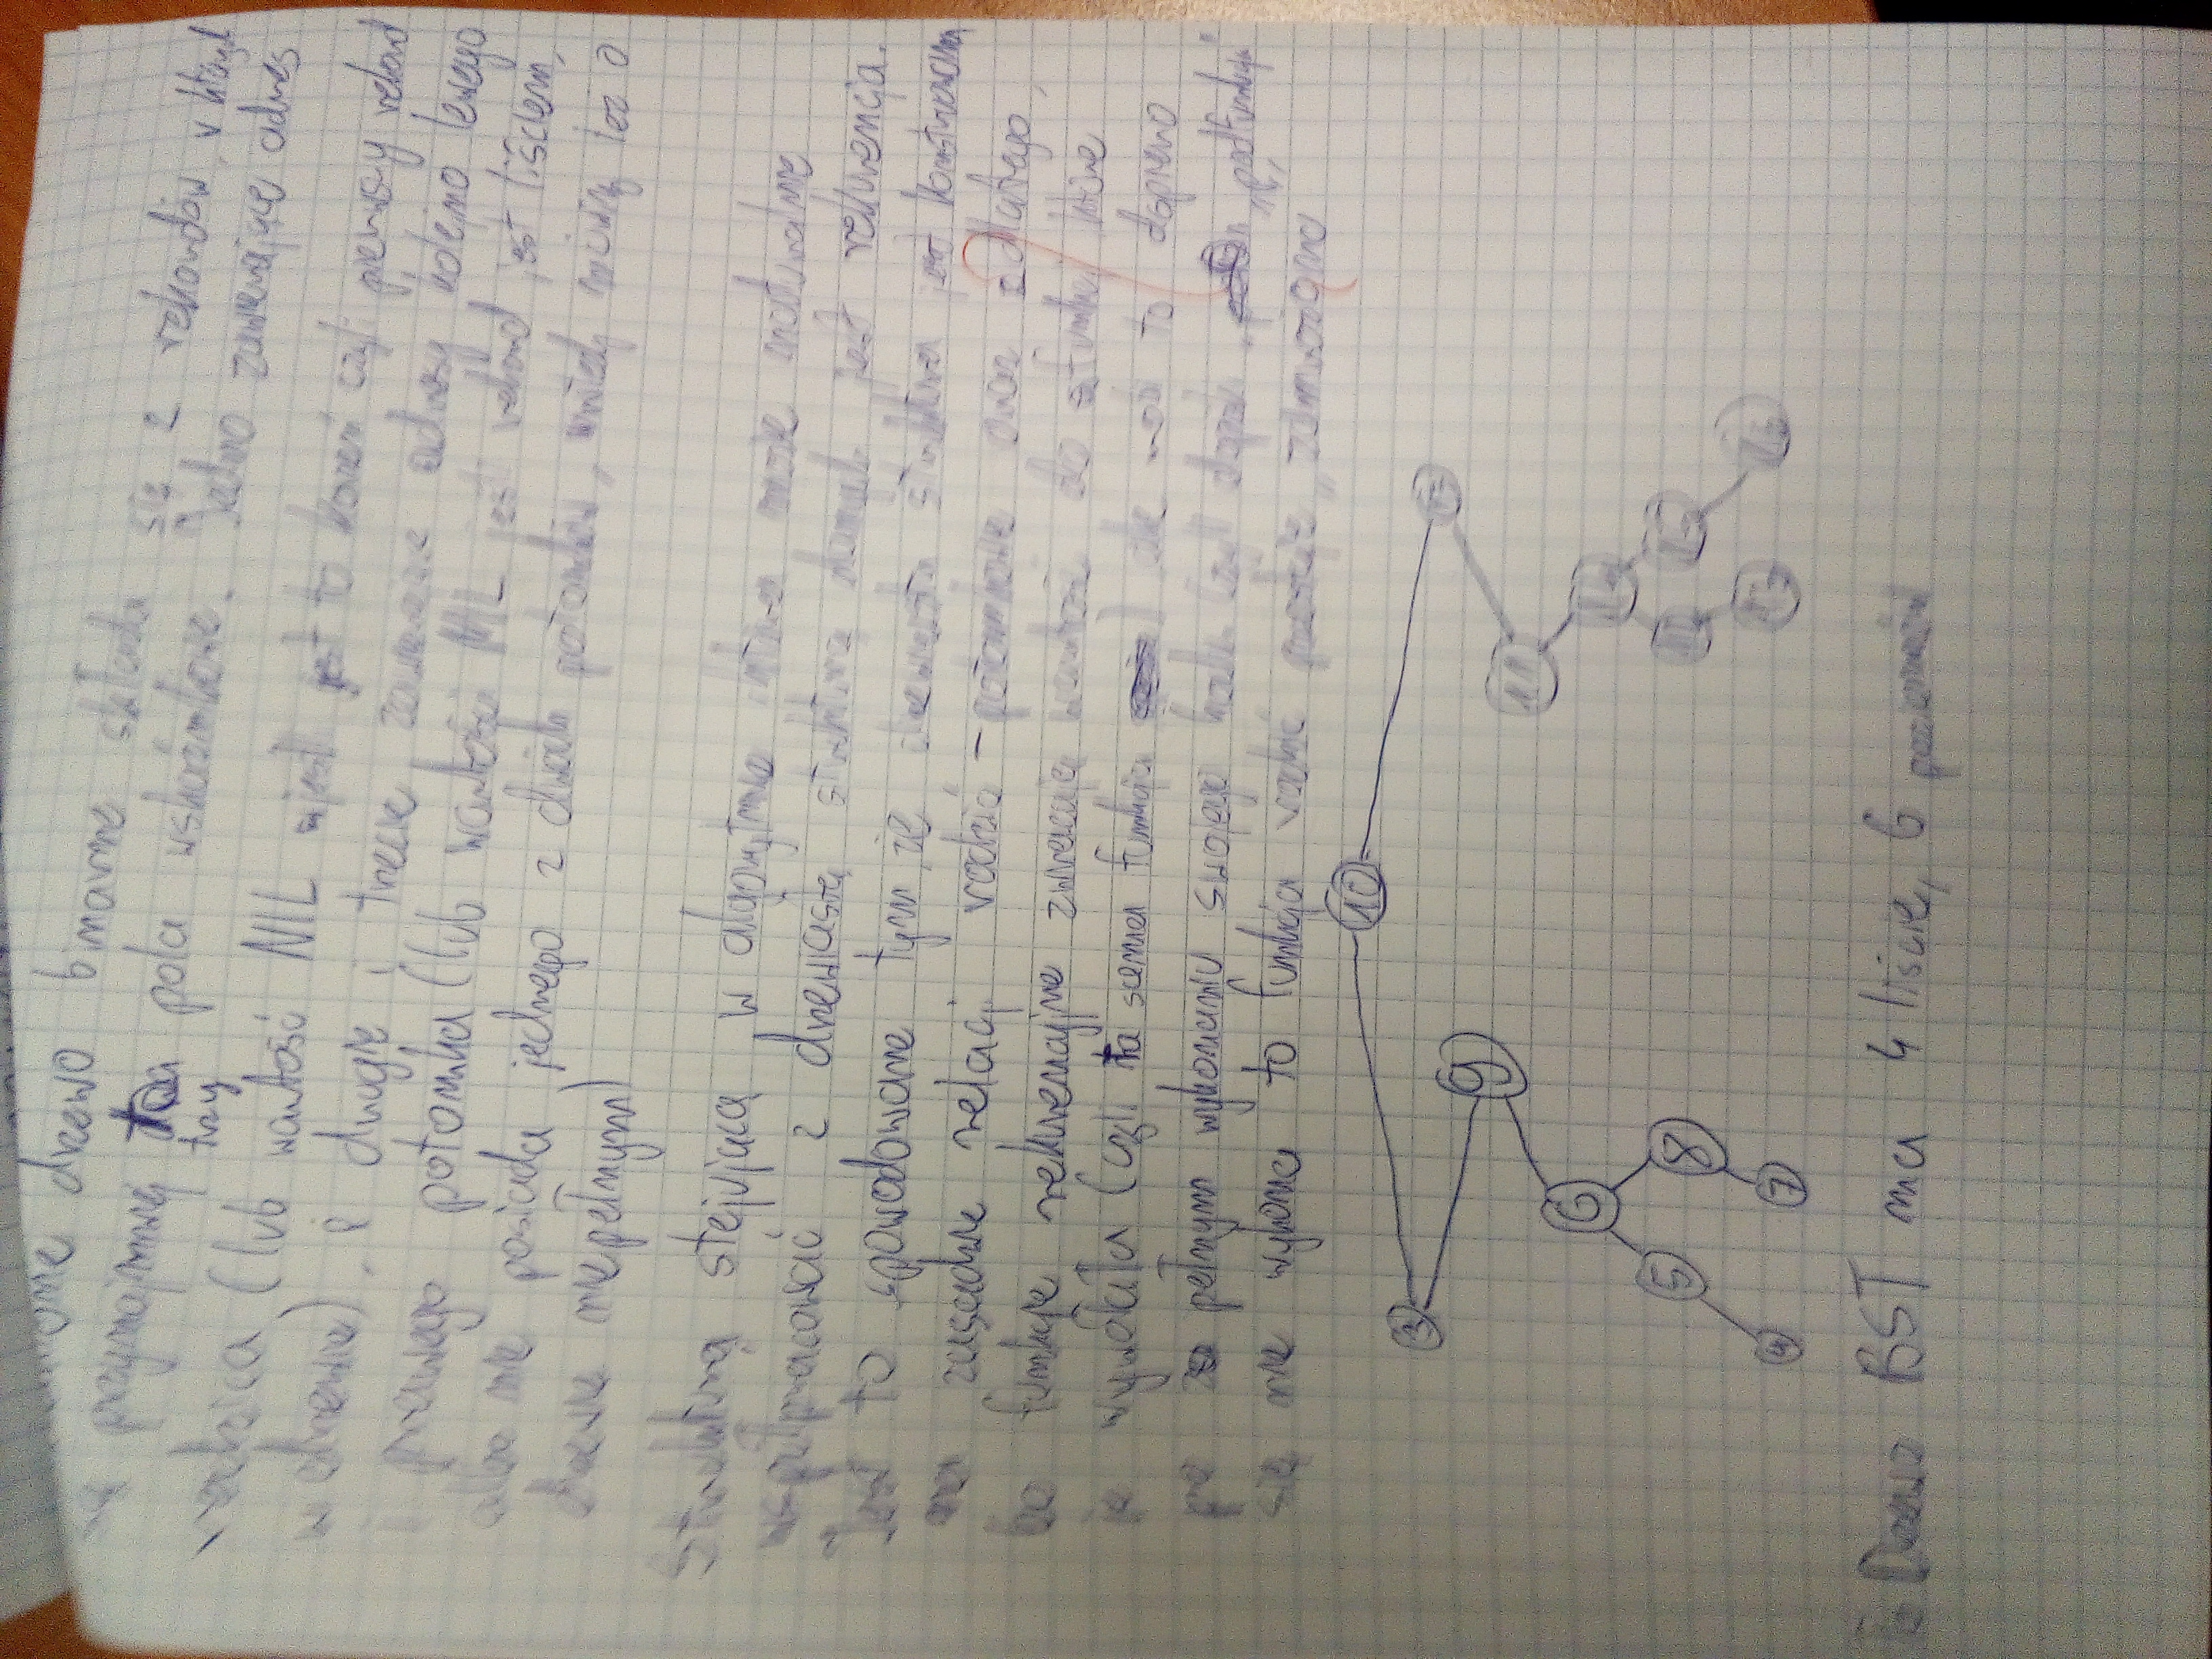 drzewo binarne składa się z rekordów, w których
są przynajmniej trzy pola wskaźnikowe. Jedno zawierające adres
rodzica (lub wartość NIL jeśli jest to korzeń czyli pierwszy rekord
w drzewie), i drugie i trzecie zawierające adresy kolejno lewego
i prawego potomka (lub wartości NIL jeśli rekord jest liściem,
albo nie posiada jednego z dwóch potomków, wtedy mówimy też o
drzewie niepełnym)
Strukturą stejującą w algorytmie która może naturalnie
współpracować z drzewiastą strukturą danych jest rekurencja.
Jest to spowodowane tym, że drzewiasta struktura jest konstruowana
na zasadzie relacji rodzic - potomkowie oraz dlatego,
bo funkcje rekurencyjne zwracają wartość do funkcji które
je wywołała (czyli ta sama funkcja) ale robi to dopiero
po pełnym wykonaniu swojego kodu czyli dopóki „podfunkcja"
się nie wykona to funkcja rodzic pozostaje „zamrożona
10
3
9
11
6
5
8
4
7
To Drzewo BST ma 4 liście, 6 poziomów